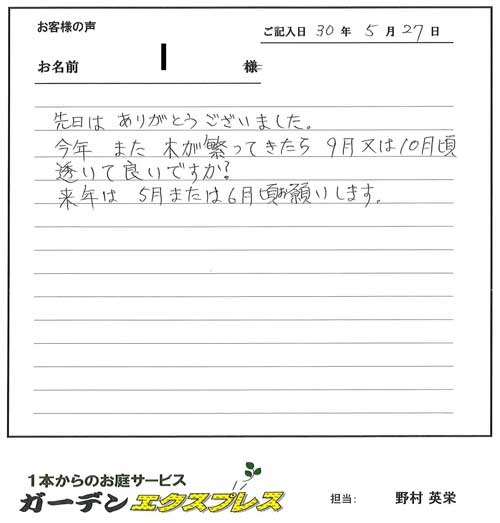 お客様の声
ご記入日 30 年 5 月 27 日
お名前 様
先日は ありがとうございました。
今年 また 木が繁ってきたら 9月又は10月頃
透いて良いですか?
来年は 5月または6月頃お願いします。
1本からのお庭サービス
ガーデンエクスプレス
担当: 野村 英栄